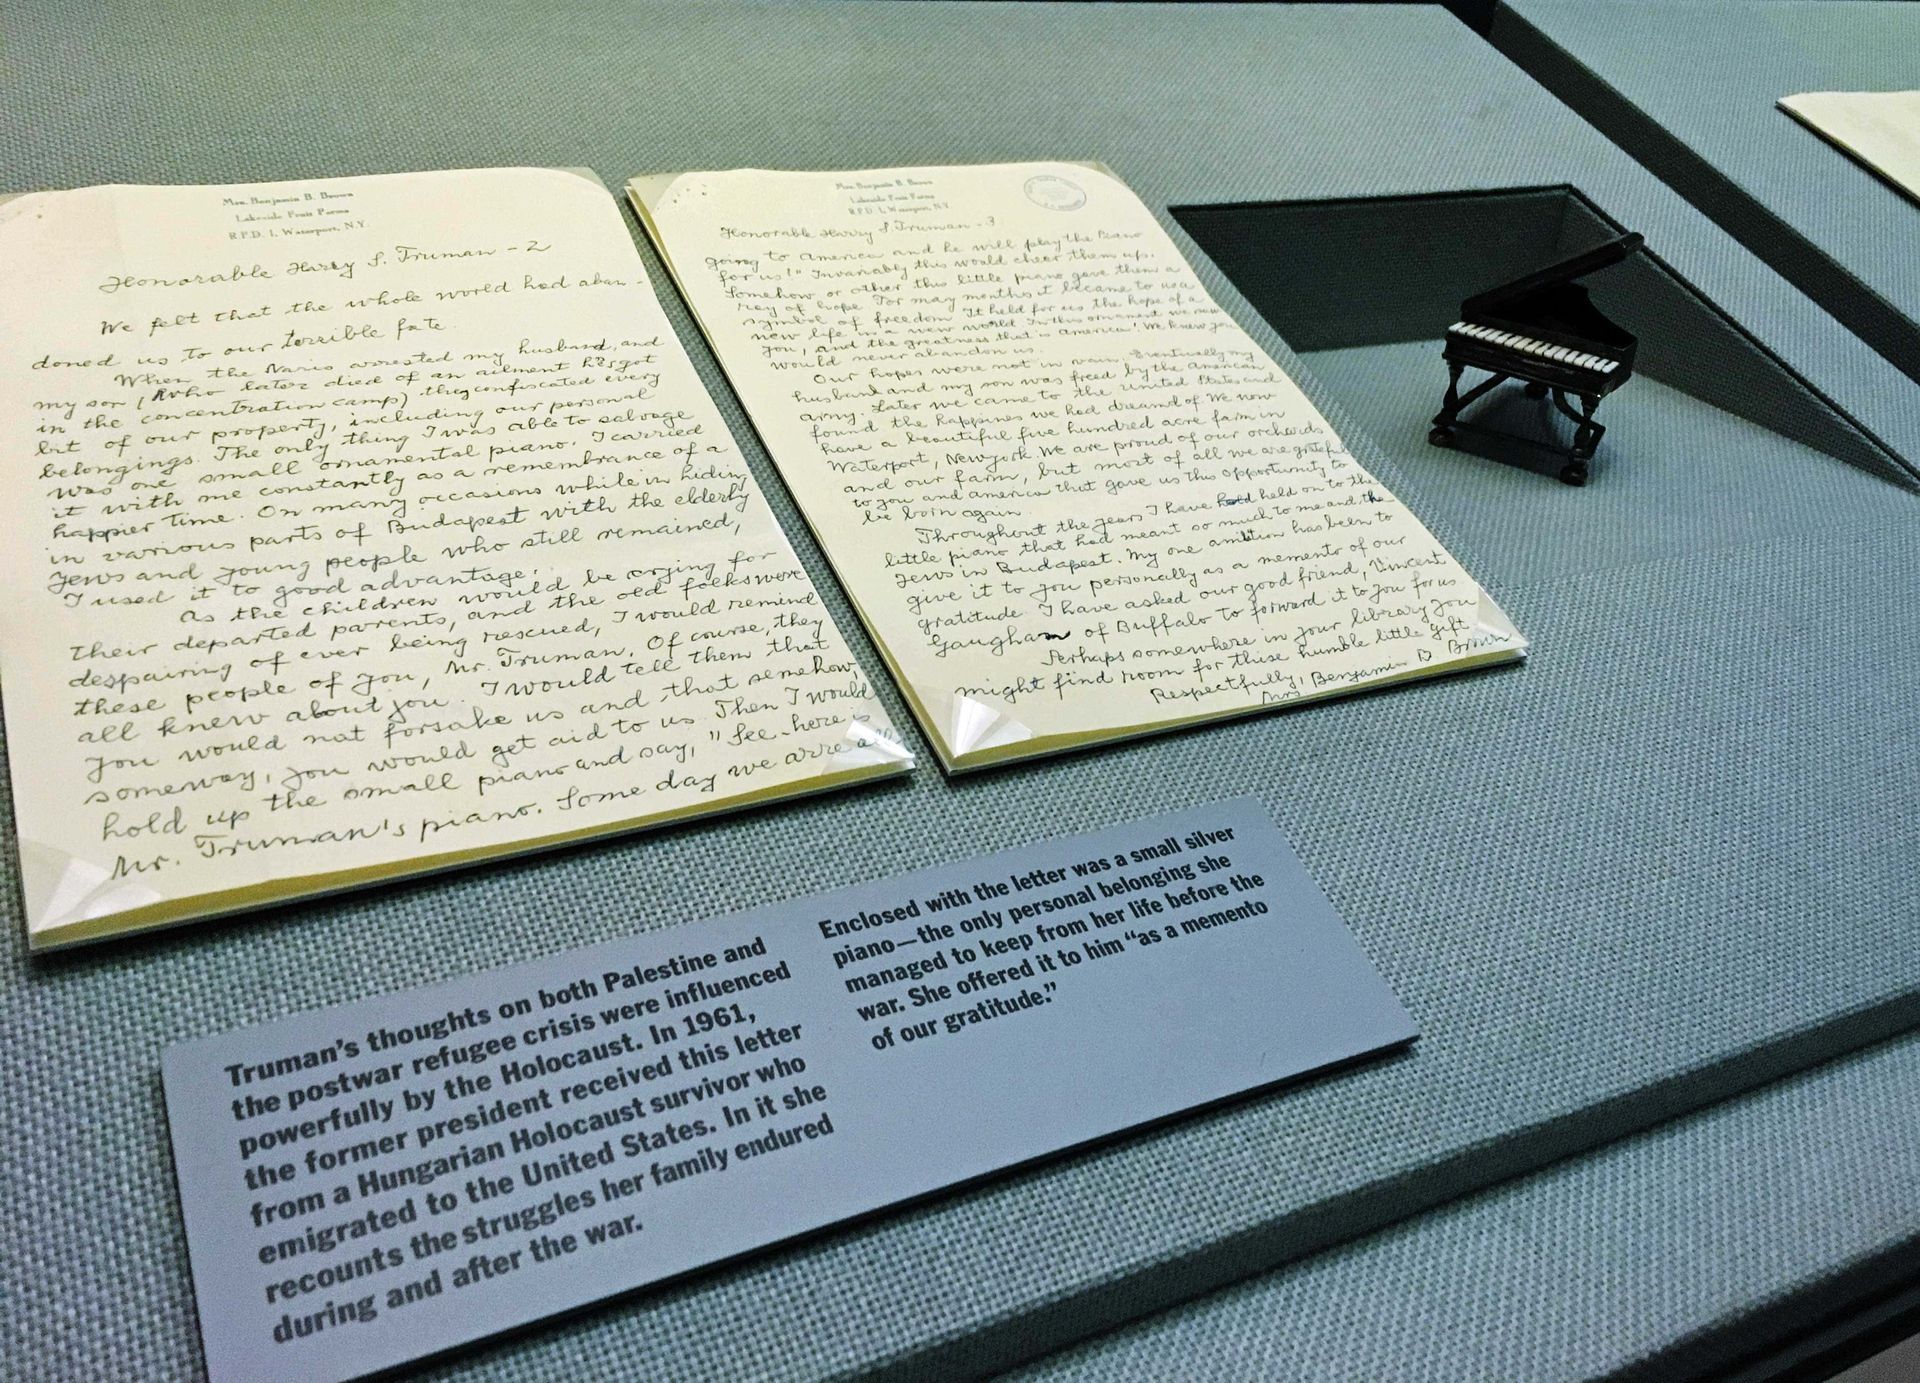 Mrs. Benjamin B. Brown
Lakeside Fruit Farms
R.F.D. 1, Waterport, N.Y.
Honorable Harry S. Truman - 2
We felt that the whole world had aban-
doned us to our terrible fate.
When the Nazis arrested my husband, and
my son (who later died of an ailment he got
in the concentration camp) they confiscated every
bit of our property, including our personal
belongings. The only thing I was able to salvage
was one small ornamental piano. I carried
it with me constantly as a remembrance of a
happier time. On many occasions while in hiding
in various parts of Budapest with the elderly
Jews and young people who still remained,
I used it to good advantage.
As the children would be crying for
their departed parents, and the old folks were
despairing of ever being rescued, I would remind
these people of you, Mr. Truman. Of course, they
all knew about you. I would tell them that
you would not forsake us and that somehow,
someway, you would get aid to us. Then I would
hold up the small piano and say, "See, here is
Mr. Truman's piano. Some day we arre all
Mrs. Benjamin B. Brown
Lakeside Fruit Farms
R.F.D. 1, Waterport, N.Y.
Honorable Harry S. Truman - 3
going to America and he will play the piano
for us!" Invariably this would cheer them up.
Somehow or other this little piano gave them a
ray of hope. For may months it became to us a
symbol of freedom. It held for us the hope of a
new life in a new world. In this ornament we saw
you, and the greatness that is America! We knew you
would never abandon us.
Our hopes were not in vain. Eventually my
husband and my son was freed by the American
army. Later we came to the United States and
found the happiness we had dreamed of. We now
have a beautiful five hundred acre farm in
Waterport, New York. We are proud of our orchards
and our farm, but most of all we are grateful
to you and America that gave us this opportunity to
be born again.
Throughout the years I have held on to the
little piano that had meant so much to me and the
Jews in Budapest. My one ambition has been to
give it to you personally as a memento of our
gratitude. I have asked our good friend, Vincent
Gaughan of Buffalo to forward it to you for us
Perhaps somewhere in your library you
might find room for this humble little gift.
Respectfully,
Mrs Benjamin B. Brown
Truman's thoughts on both Palestine and
the postwar refugee crisis were influenced
powerfully by the Holocaust. In 1961,
the former president received this letter
from a Hungarian Holocaust survivor who
emigrated to the United States. In it she
recounts the struggles her family endured
during and after the war.
Enclosed with the letter was a small silver
piano—the only personal belonging she
managed to keep from her life before the
war. She offered it to him “as a memento
of our gratitude.”